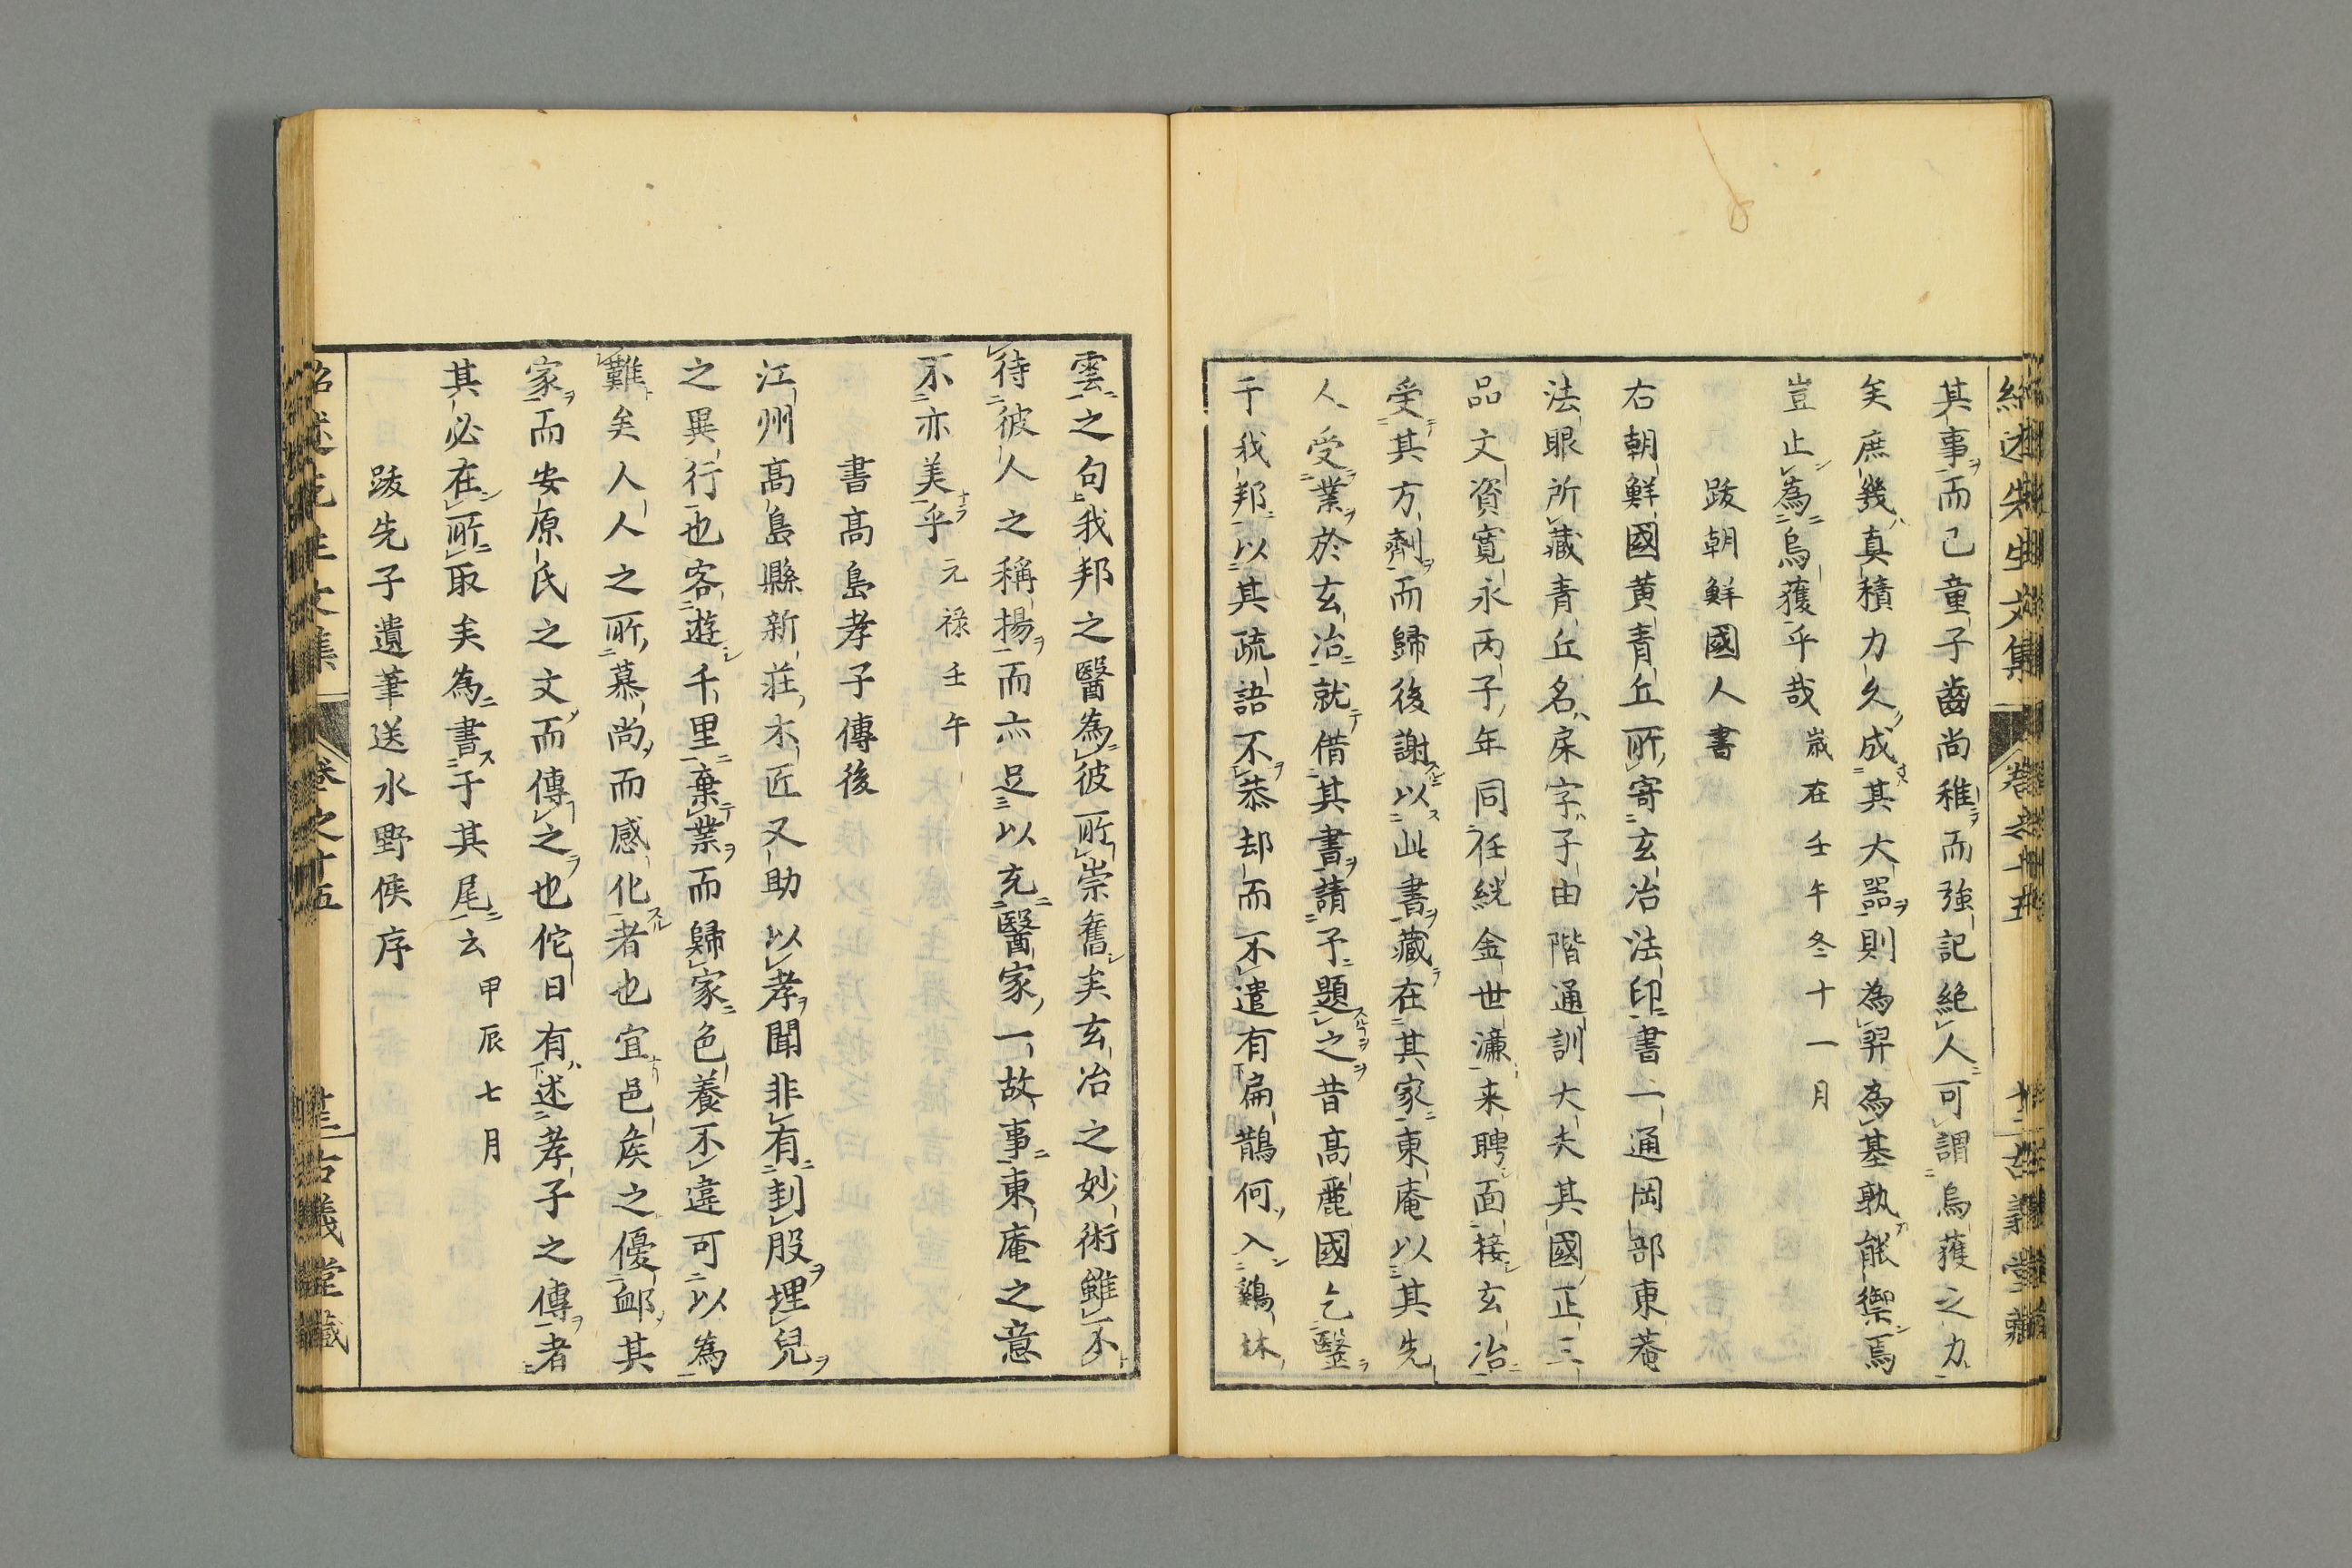 紹述先生文集 卷之十五 古義堂藏
其事而已童子齒尚稚而強記絶人可謂烏獲之力
矣庶幾真積力久成其大器則為羿為基孰能禦焉
豈止為烏獲乎哉 歳在壬午冬十一月
跋朝鮮國人書
右朝鮮國黄青丘所寄玄冶法印書一通岡部東菴
法眼所藏青丘名床字子由階通訓大夫其國正三
品文資寛永丙子年同任絖金世濂来聘面接玄冶
受其方劑而歸後謝以此書藏在其家東庵以其先
人受業於玄冶就借其書請予題之昔髙麗國乞毉
于我邦以其疏語不恭却而不遣有扁鵲何入鷄林
雲之句我邦之醫為彼所崇舊矣玄冶之妙術雖不
待彼人之稱揚而亦足以充醫家一故事東庵之意
不亦美乎 元禄壬午
書髙島孝子傳後
江州髙島縣新莊木匠又助以孝聞非有刲股埋兒
之異行也客遊千里棄業而歸家色養不違可以為
難矣人人之所慕尚而感化者也宜邑矦之優䘏其
家而安原氏之文而傳之也佗日有述孝子之傳者
其必在所取矣為書于其尾云 甲辰七月
跋先子遺筆送水野侯序
紹述先生文集 卷之十五 古義堂藏